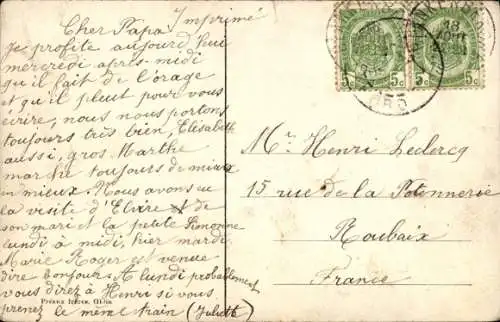 Imprimé
Cher Papa
Je profite aujourd'hui
mercredi après-midi
qu'il fait de l'orage
et qu'il pleut pour vous
écrire, nous nous portons
toujours très bien, Elisabeth
aussi, gros. Marthe
marche toujours de mieux
en mieux. Nous avons eu
la visite d'Elvire & de
son mari et la petite Simonne
lundi à midi, hier mardi
Marie Roger est venue
dire bonjour. A lundi probablement
vous direz à Henri si vous
prenez le même train (Juliette)
Mr Henri Leclercq
15 rue de la Potennerie
Roubaix
France
5c 5c